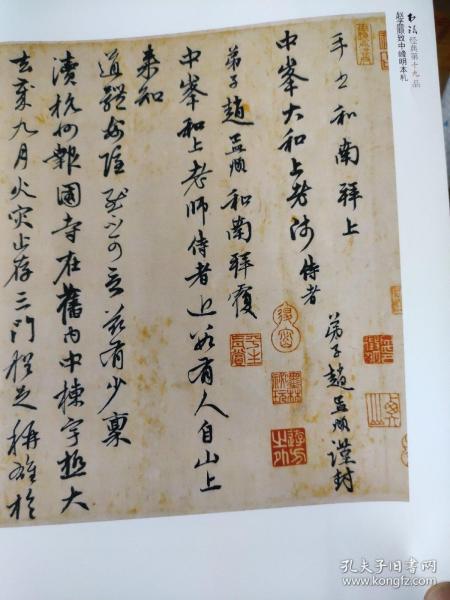 书法 经典第十九品
赵孟頫致中峰明本札
手书和南拜上
中峯大和上老师侍者
弟子趙孟頫謹封
弟子趙孟頫和南拜覆
中峯和上老師侍者近有人自山上
来知
道體安隱可言茲有少稟
瀆杭州報國寺在舊内中棟宇極大
去歲九月火灾止存三門足稱雄於
孔夫子旧书网
www.kongfz.com